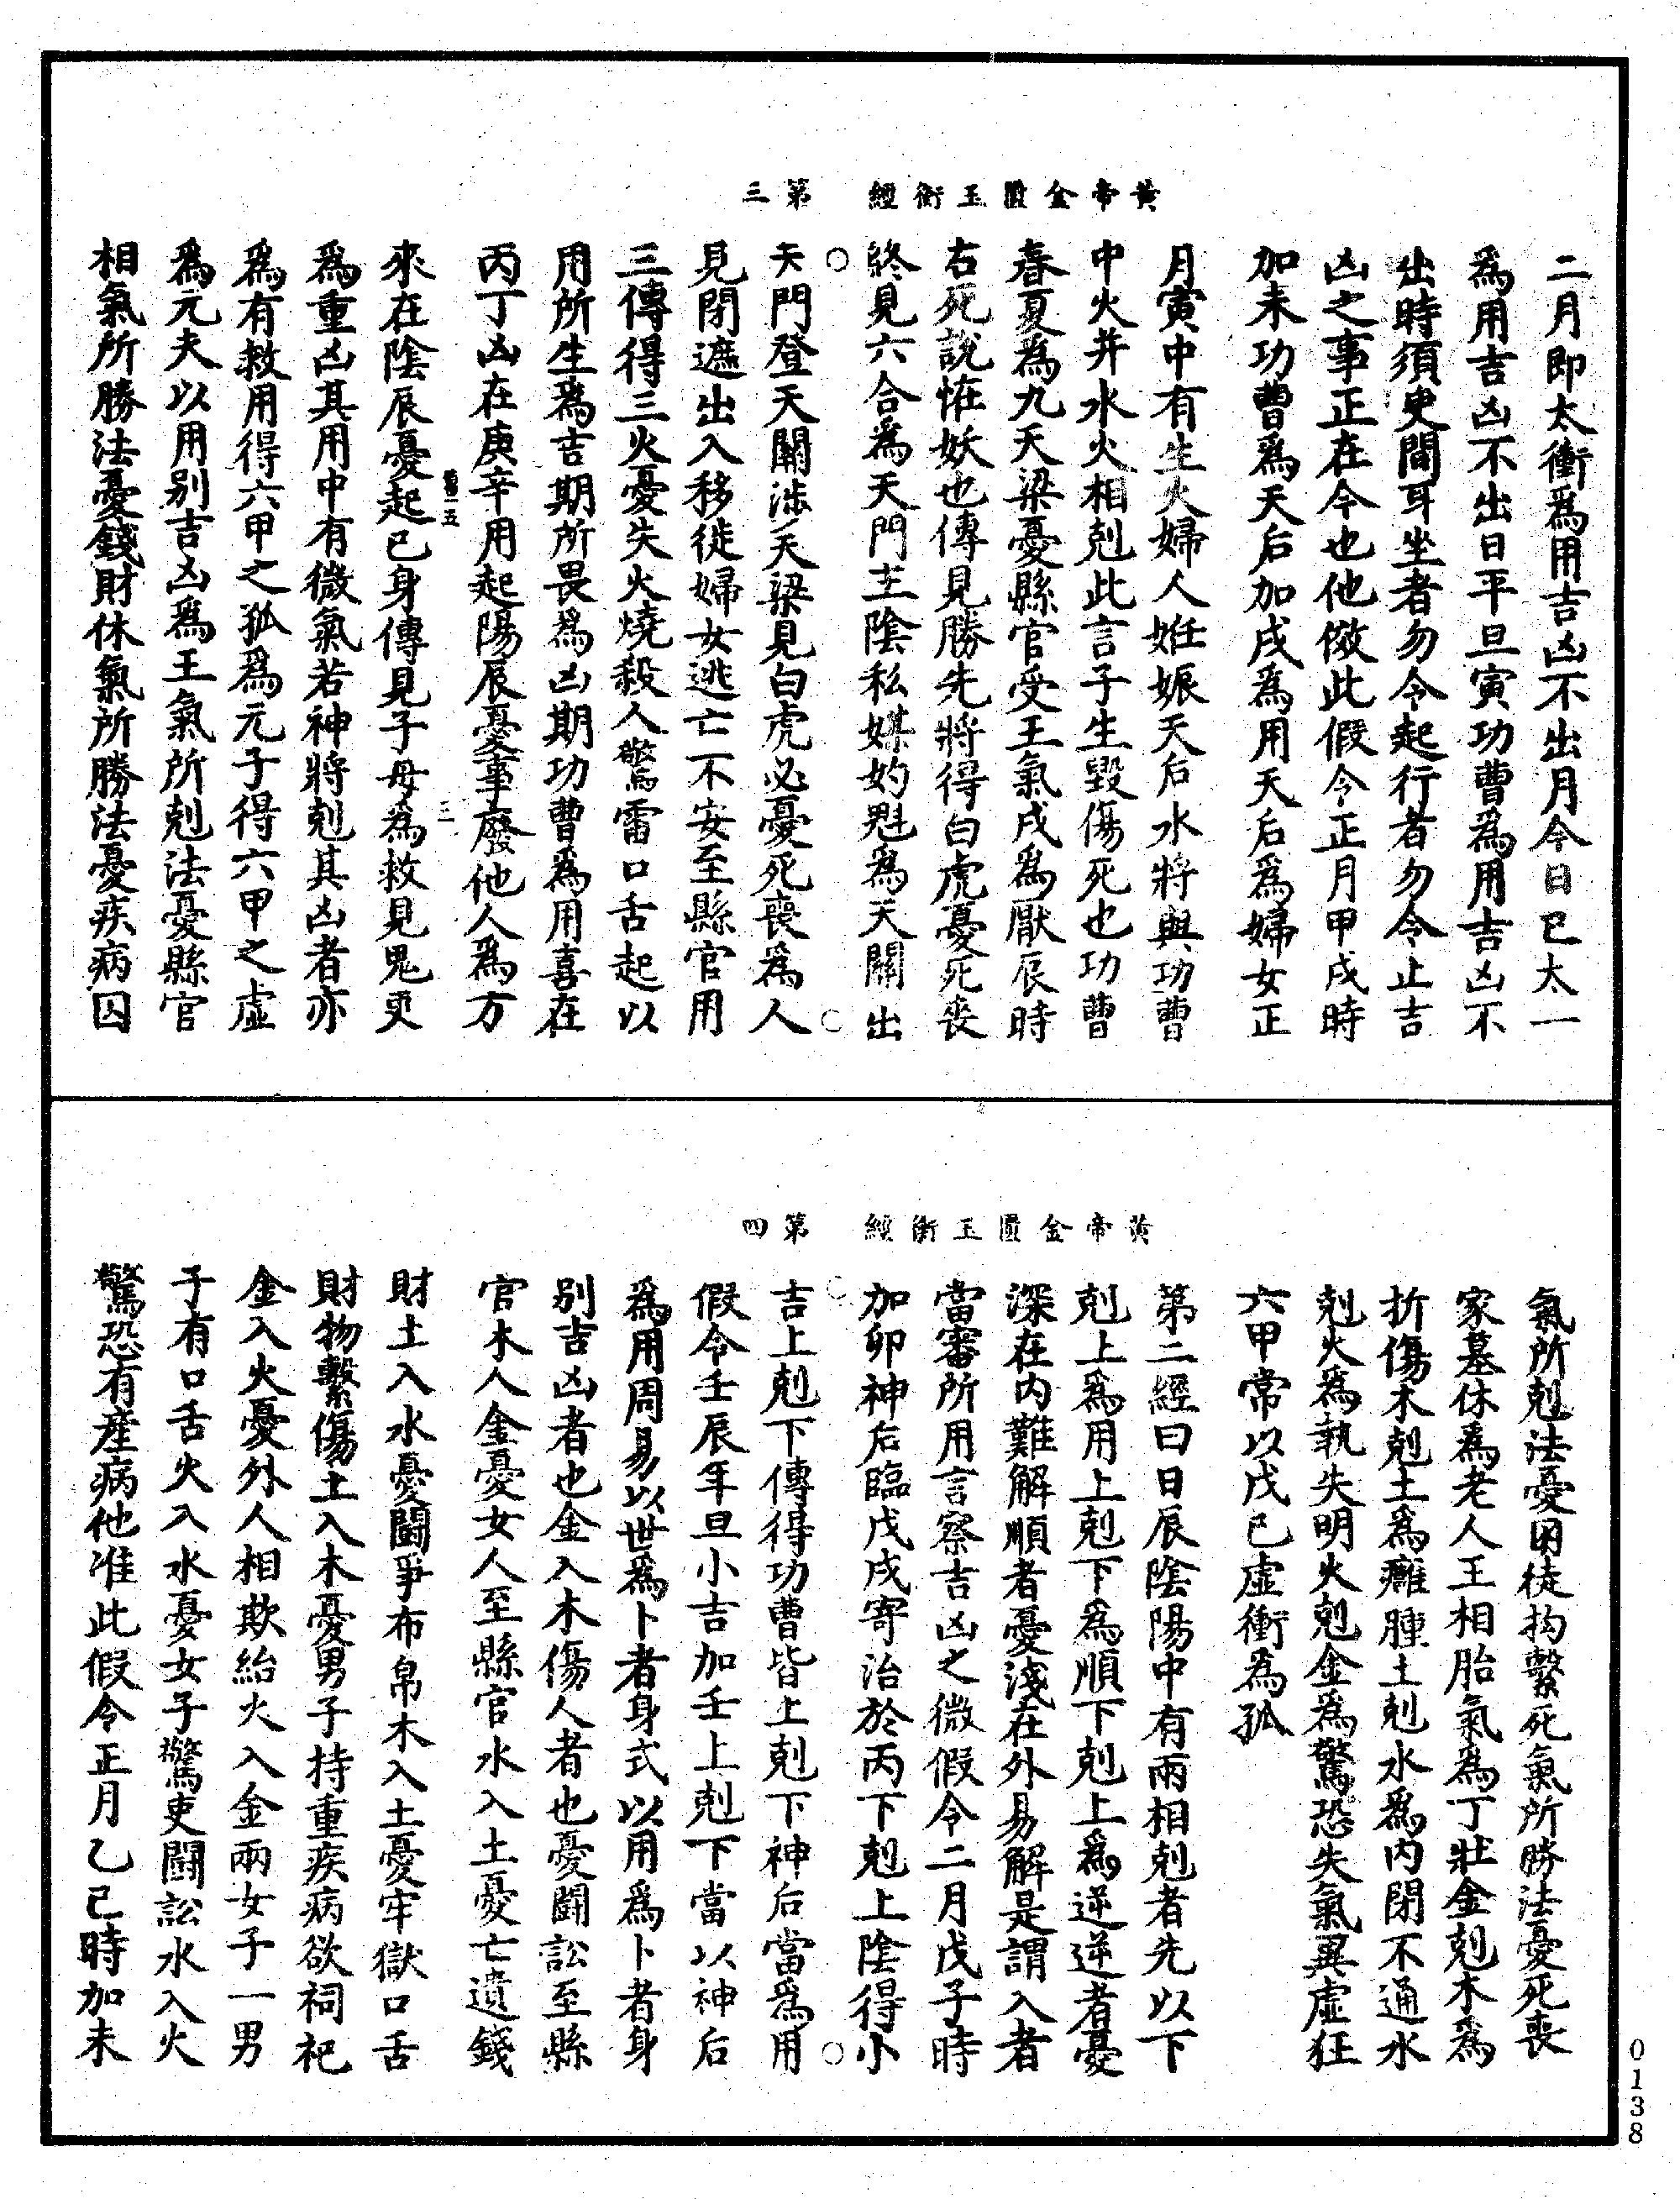 黃帝金匱玉衡經　第三
二月即太衝爲用吉凶不出月今日已太一
爲用吉凶不出日平旦寅功曹爲用吉凶不
出時須臾間耳坐者勿令起行者勿令止吉
凶之事正在今也他倣此假今正月甲戌時
加未功曹爲天后加戌爲用天后爲婦女正
月寅中有生火婦人姙娠天后水將與功曹
中火并水火相剋此言子生毀傷死也功曹
春夏爲九天梁憂縣官受王氣戌爲厭辰時
右死說恠妖也傳見勝先將得白虎憂死丧
終見六合爲天門主陰私媒妁魁爲天關出
天門登天關涉天梁見白虎必憂死喪爲人
見閉遮出入移徙婦女逃亡不安至縣官用
三傳得三火憂失火燒殺人驚雷口舌起以
用所生爲吉期所畏爲凶期功曹爲用喜在
丙丁凶在庚辛用起陽辰憂事廢他人爲方
來在陰辰憂起已身傳見子母爲救見鬼更
爲重凶其用中有微氣若神將剋其凶者亦
爲有救用得六甲之孤爲元子得六甲之虛
爲元夫以用別吉凶爲王氣所剋法憂縣官
相氣所勝法憂錢財休氣所勝法憂疾病囚
黃帝金匱玉衡經　第四
氣所剋法憂囚徒拘繫死氣所勝法憂死喪
家墓休爲老人王相胎氣爲丁壯金剋木爲
折傷木剋土爲癰腫土剋水爲内閉不通水
剋火爲執失明火剋金爲驚恐失氣異虛狂
六甲常以戊己虛衝爲孤
第二經曰日辰陰陽中有兩相剋者先以下
剋上爲用上剋下爲順下剋上爲逆逆者憂
深在内難解順者憂淺在外易解是謂入者
當審所用言察吉凶之微假令二月戊子時
加卯神后臨戊戌寄治於丙下剋上陰得小
吉上剋下傳得功曹皆上剋下神后當爲用
假令壬辰年旦小吉加壬上剋下當以神后
爲用周易以世爲卜者身式以用爲卜者身
別吉凶者也金入木傷人者也憂鬭訟至縣
官木人金憂女人至縣官水入土憂亡遺錢
財土入水憂鬭爭布帛木入土憂牢獄口舌
財物繫傷土入木憂男子持重疾病欲祠祀
金入火憂外人相欺紿火入金兩女子一男
子有口舌火入水憂女子驚吏鬭訟水入火
驚恐有産病他准此假令正月乙己時加未
0138